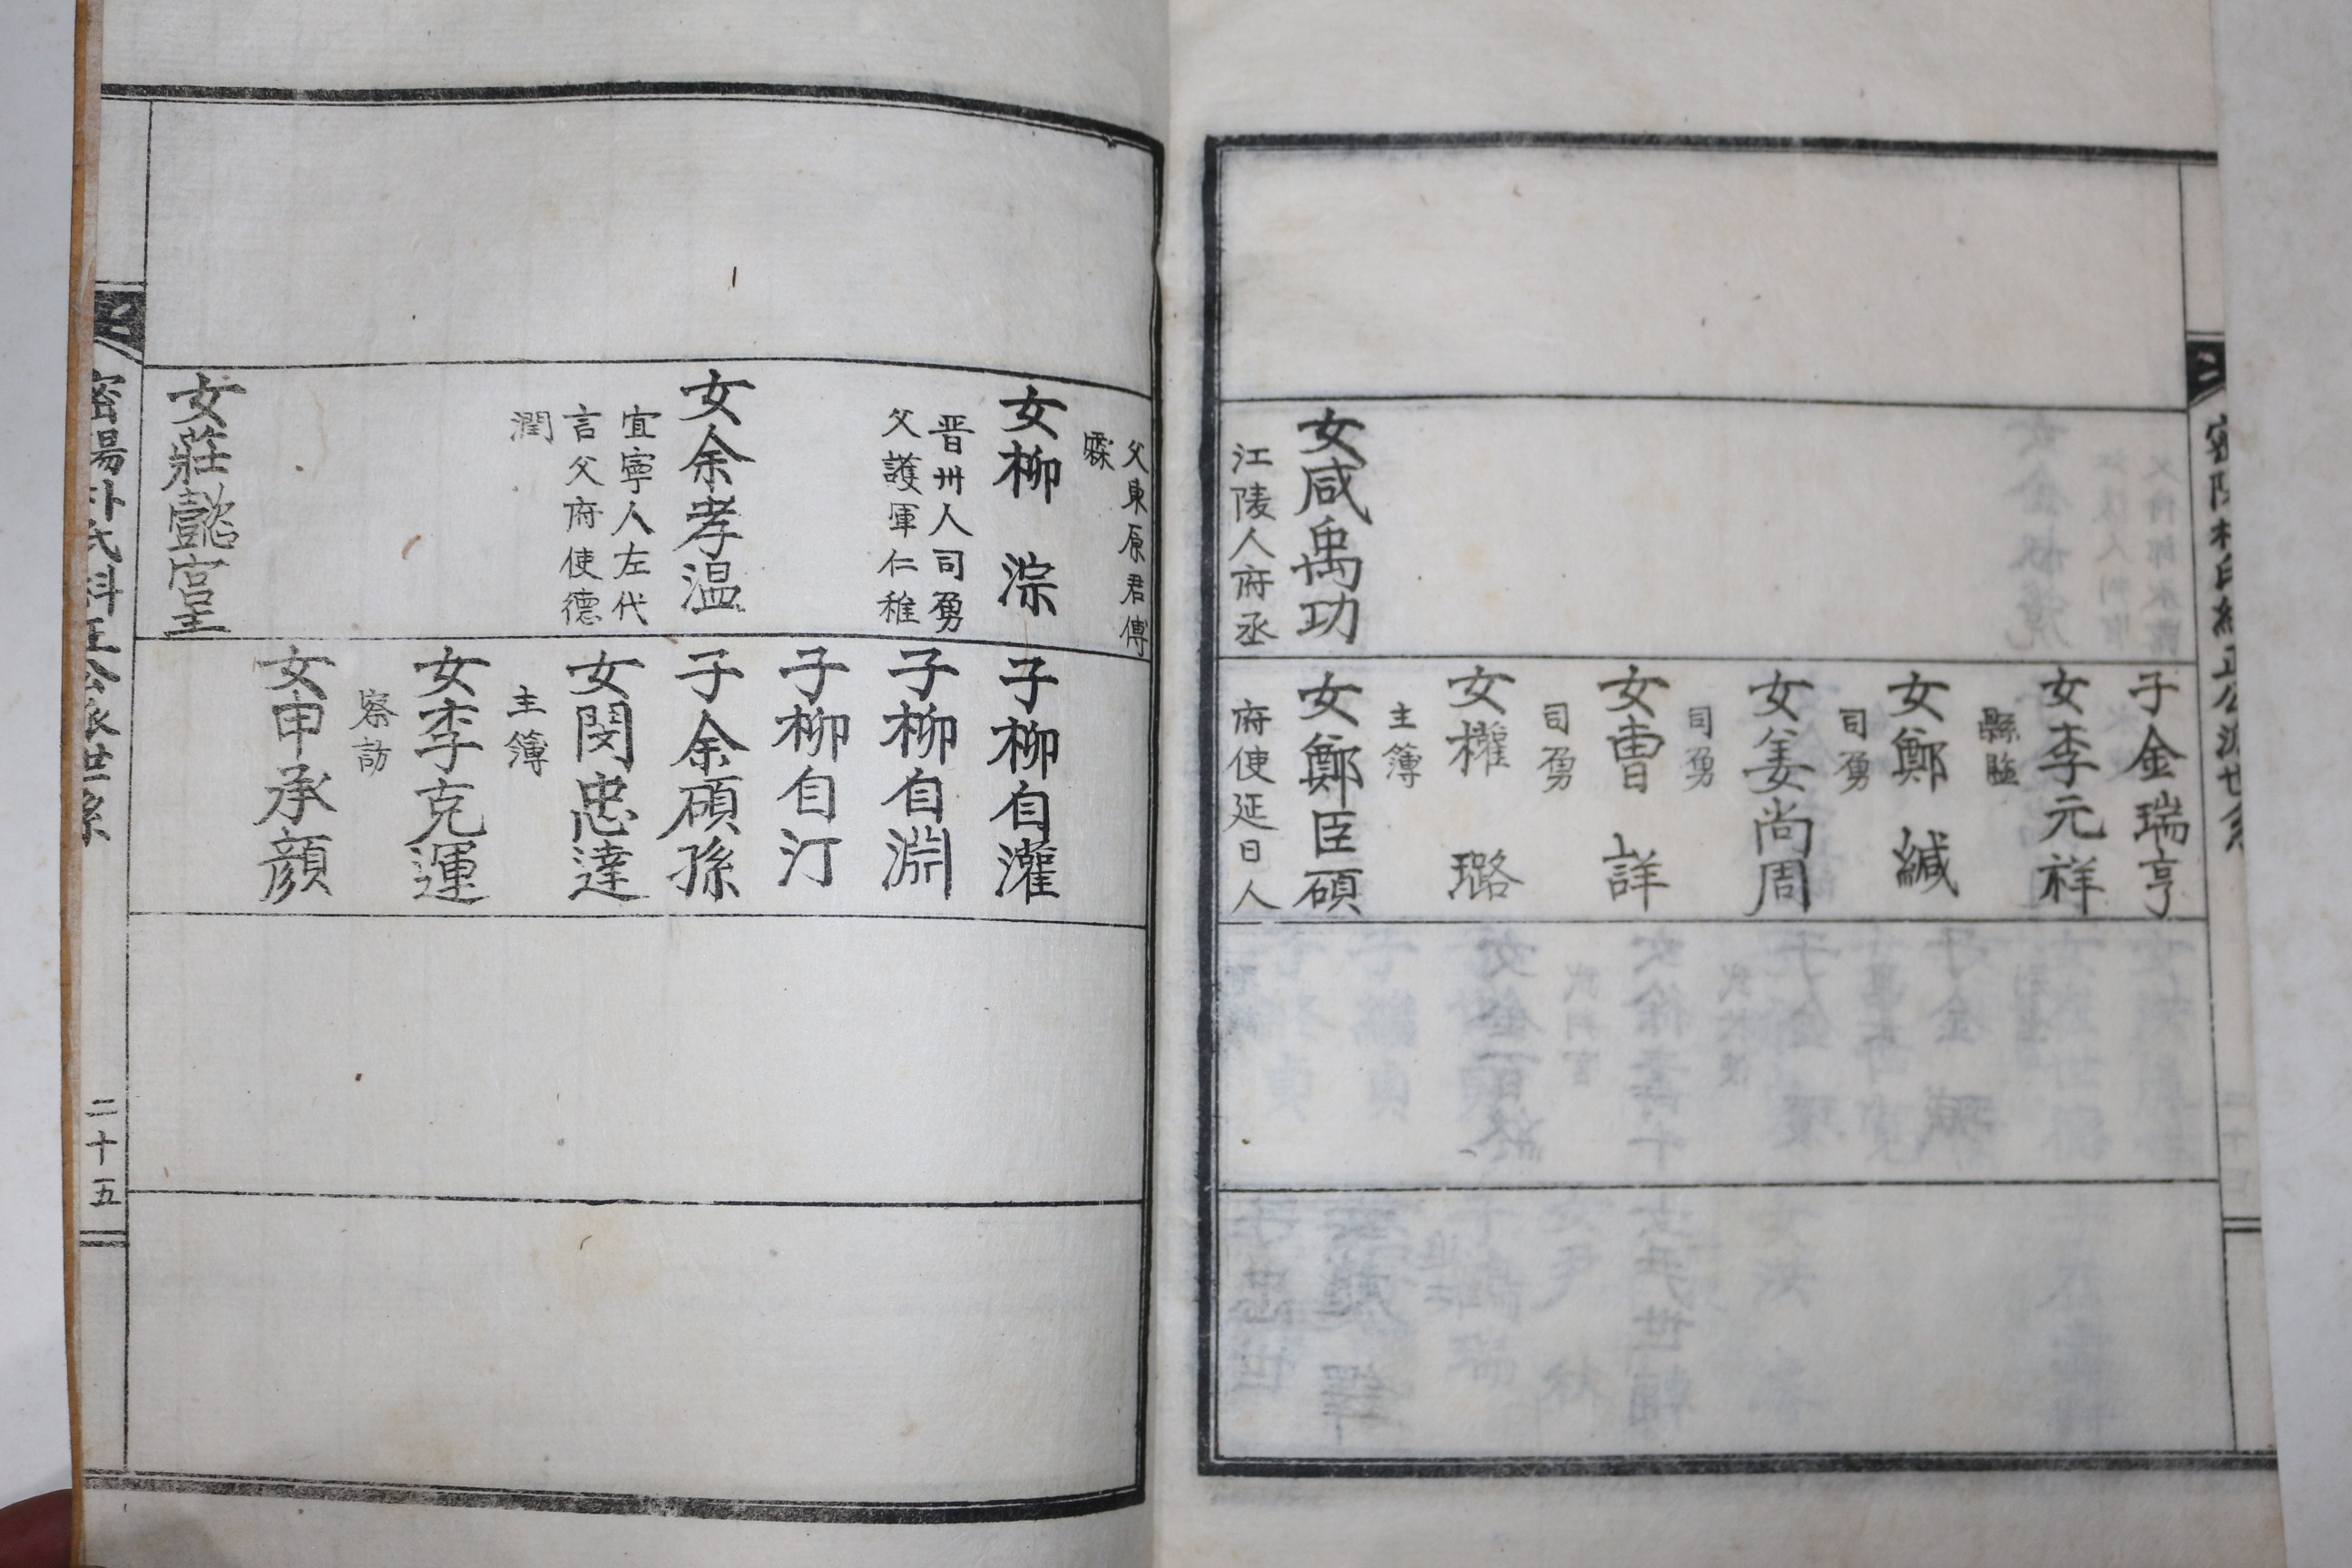 子金瑞亨
女李元祥
縣監
女鄭緘
司勇
女姜尚周
司勇
女曺詳
司勇
女權璐
主簿
女咸禹功
女鄭臣碩
江陵人府丞
府使延日人
父東原君傅
霖
女柳淙
晋州人司勇
父護軍仁稚
子柳自灌
子柳自淵
子柳自汀
女余孝温
宜寧人左代
言父府使德
潤
子余碩孫
女閔忠達
主簿
女李克運
察訪
女申承顔
女莊懿宮主
密陽朴氏糾正公派世系
二十五